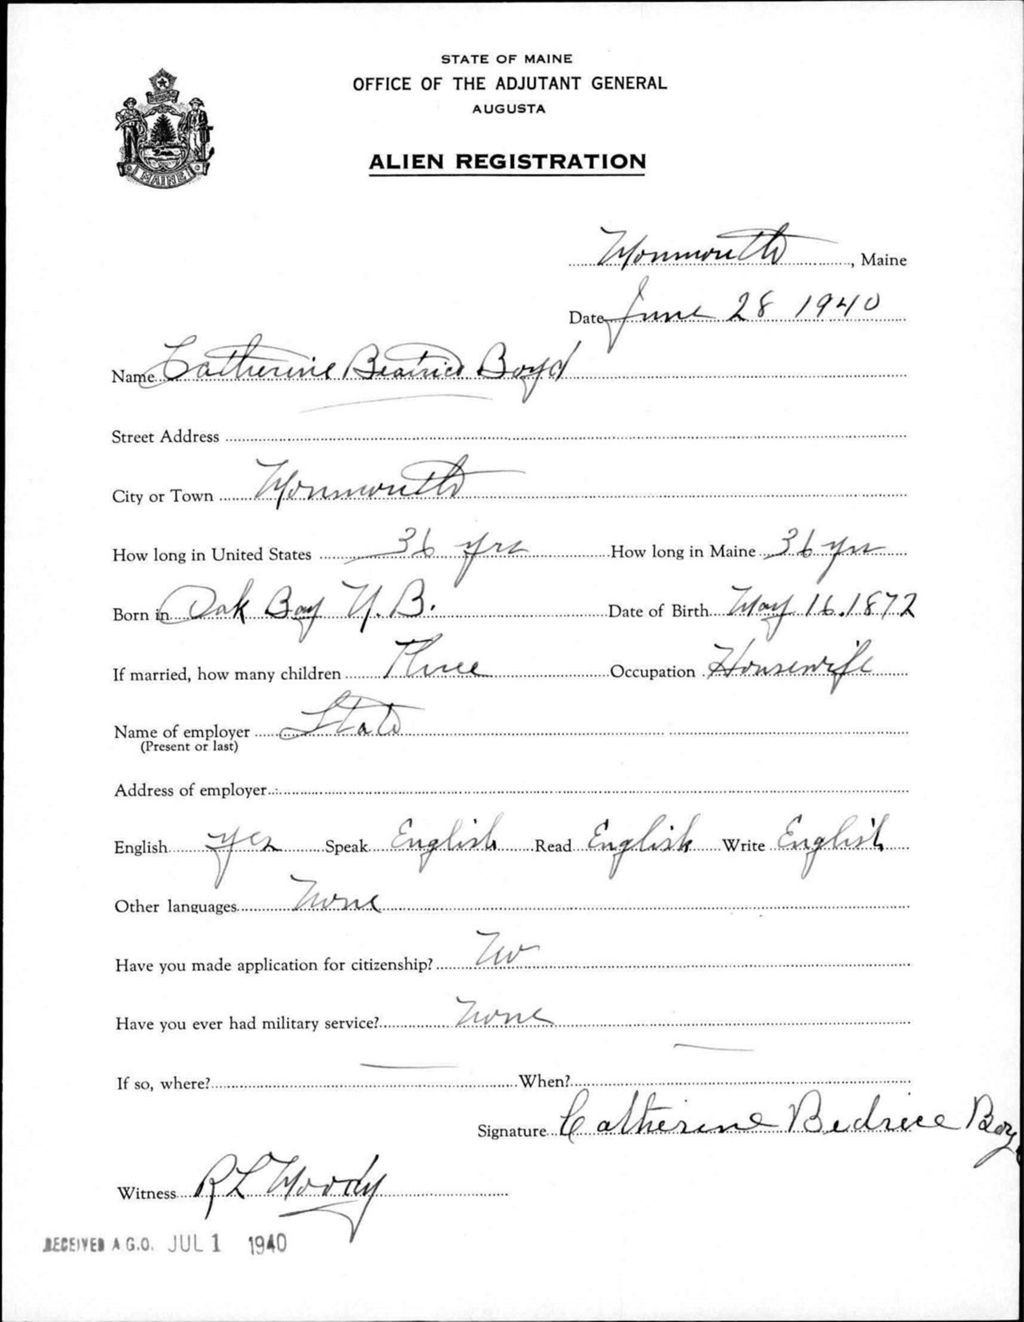 STATE OF MAINE
OFFICE OF THE ADJUTANT GENERAL
AUGUSTA
MAINE
ALIEN REGISTRATION
Monmouth, Maine
Date June 28 1940
Name Catherine Beatrice Boyd
Street Address
City or Town Monmouth
How long in United States 36 yrs How long in Maine 36 yrs
Born in Oak Bay N.B. Date of Birth May 16. 1872
If married, how many children Three Occupation Housewife
Name of employer State
(Present or last)
Address of employer
English yes Speak English Read English Write English
Other languages None
Have you made application for citizenship? No
Have you ever had military service? None
If so, where? When?
Signature Catherine Bedrice Boy
Witness R L Moody
RECEIVED A G.O. JUL 1 1940